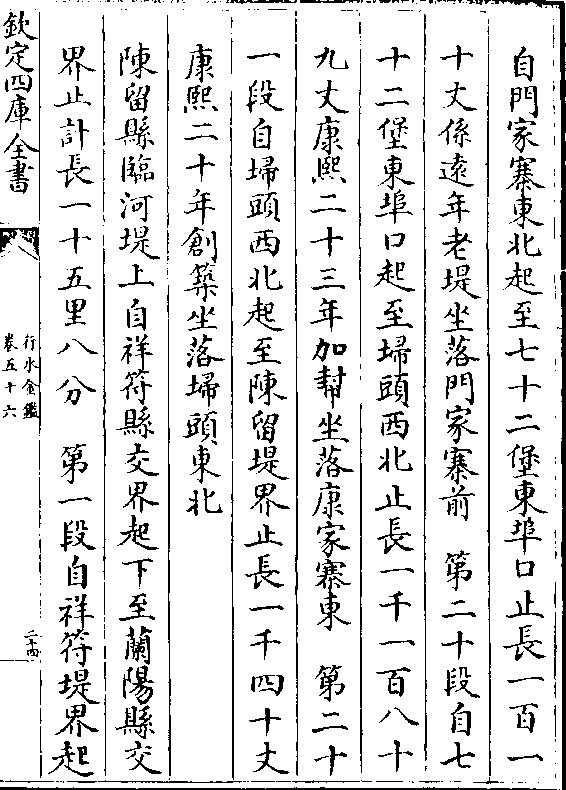 自門家寨東北起至七十二堡東埠口止長一百一
十丈係遠年老堤坐落門家寨前　第二十段自七
十二堡東埠口起至埽頭西北止長一千一百八十
九丈康熙二十三年加幫坐落康家寨東　第二十
一段自埽頭西北起至陳留堤界止長一千四十丈
康熙二十年創築坐落埽頭東北
陳留縣臨河堤上自祥符縣交界起下至蘭陽縣交
界止計長一十五里八分　第一段自祥符堤界起
欽定四庫全書
行水金鑑
卷五十六
二十四